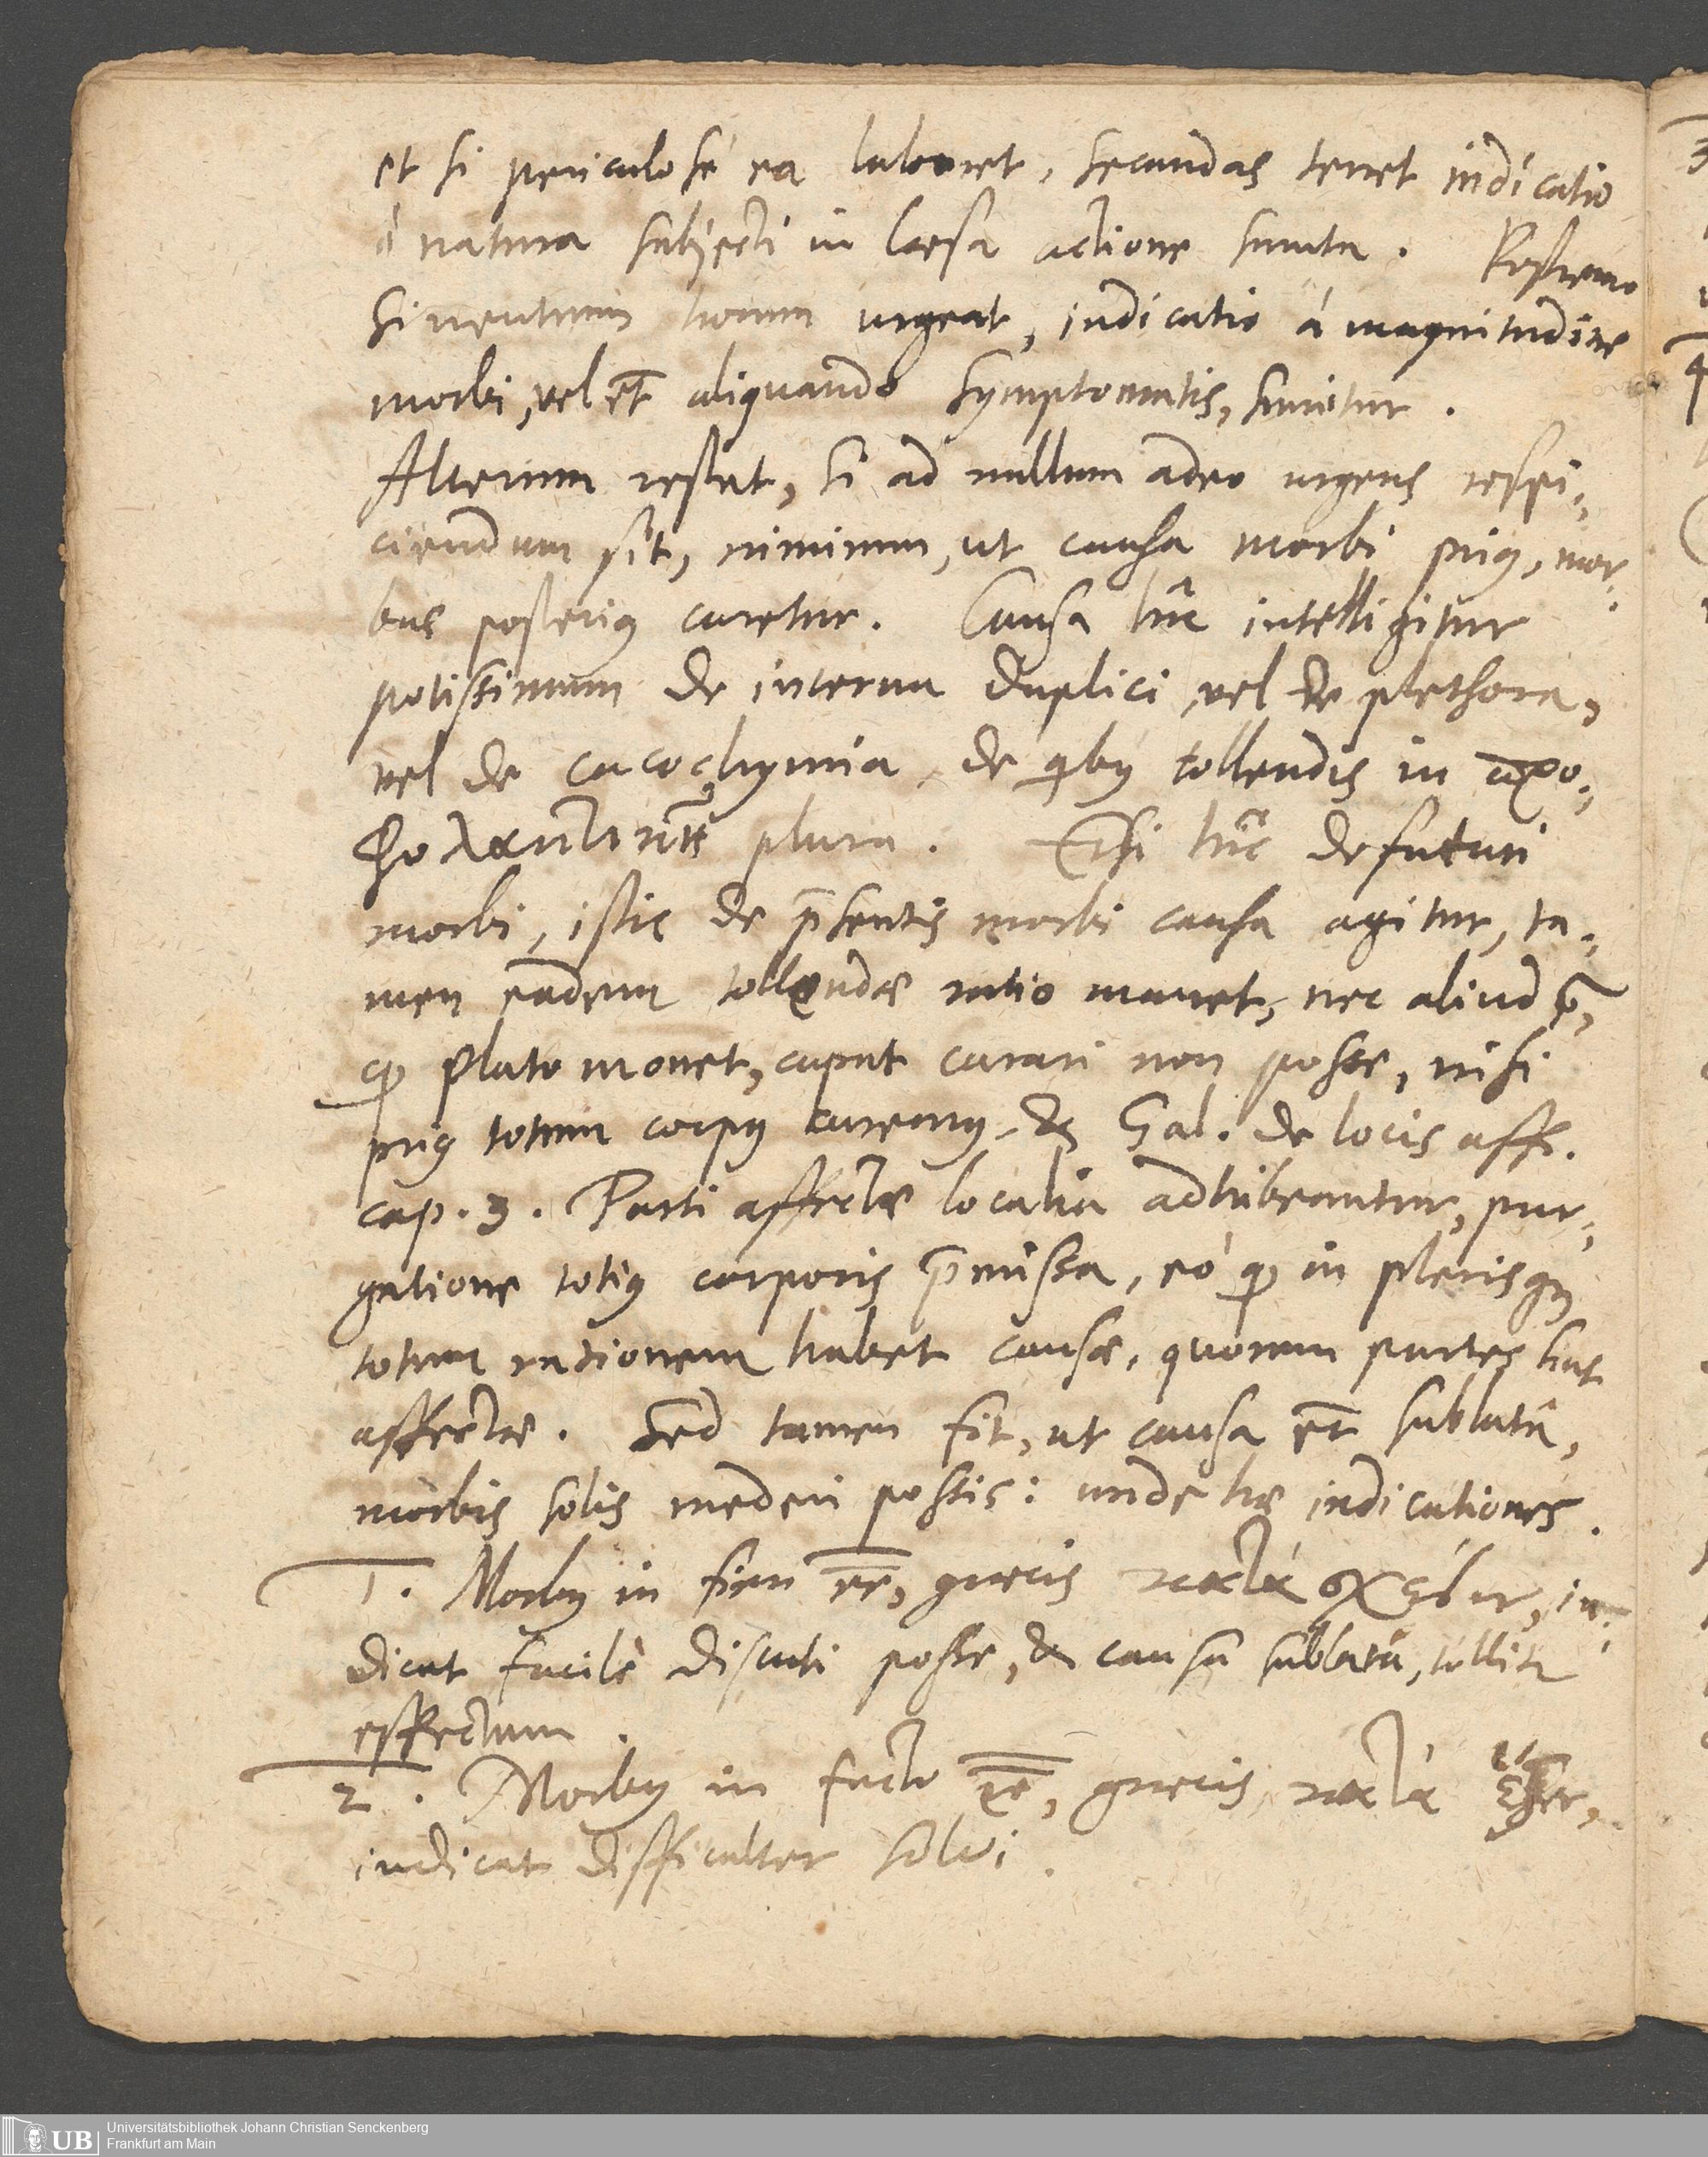 et si periculosè ea laboret, secundas tenet indicatio
à natura subjecti in laesa actione sumta. Postremo
si neutrum horum urgeat, indicatio à magnitudine
morbi, vel et̃ aliquando symptomatis, sumitur.
Alterum restat, si ad nullum adeo urgens respi-
ciendum sit, nimirum, ut causa morbi priꝰ, mor-
bus posteriꝰ curetur. Causa hîc intelligitur
potissimum de interna duplici, vel de plethora,
vel de cacochymia, de qibꝰ tollendis in προ-
φυλακτικῆ plura. Etsi hîc de futuri
morbi, istic de p̃sentis morbi causa agitur, ta-
men eadem tollendae ratio manet, nec aliud ẽ,
qđ Plato monet, caput curari non posse, nisi
priꝰ totum corpꝰ curemꝰ, & Gal. de locis aff.
cap. 3. Parti affectae localia adhibeantur, pur-
gatione totiꝰ corporis p̃missa, eò qđ in plerisqꝫ
totum rationem habet causae, quorum partes sint
affectae. Sed tamen fit, ut causa et̃ sublatâ,
morbis solis mederi possis: unde hae indicationes.
1. Morbꝰ in fieri ẽe, graecis κατὰ σχέσιν, in-
dicat facilè discuti posse, & causâ sublatâ, tollitur
effectum.
2. Morbꝰ in facto ẽe, graecis κατὰ ἕξιν,
indicat difficulter solvi.
Universitätsbibliothek Johann Christian Senckenberg
Frankfurt am Main
UB